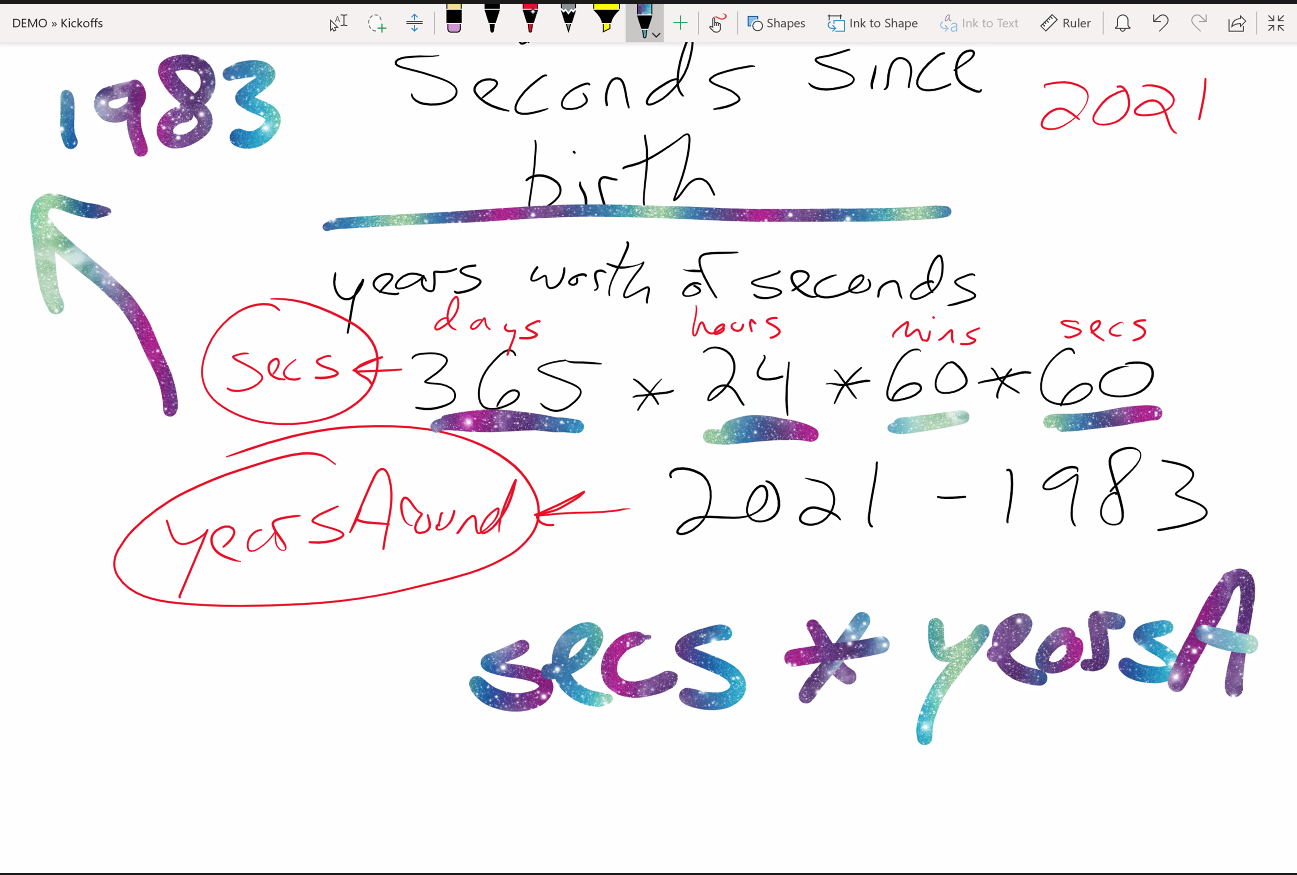 DEMO » Kickoffs
Shapes
Ink to Shape
Ink to Text
Ruler
1983
Seconds since
2021
birth
years worth of seconds
days hours mins secs
secs ← 365 * 24 * 60 * 60
yearsAround ← 2021 - 1983
secs * yearsA